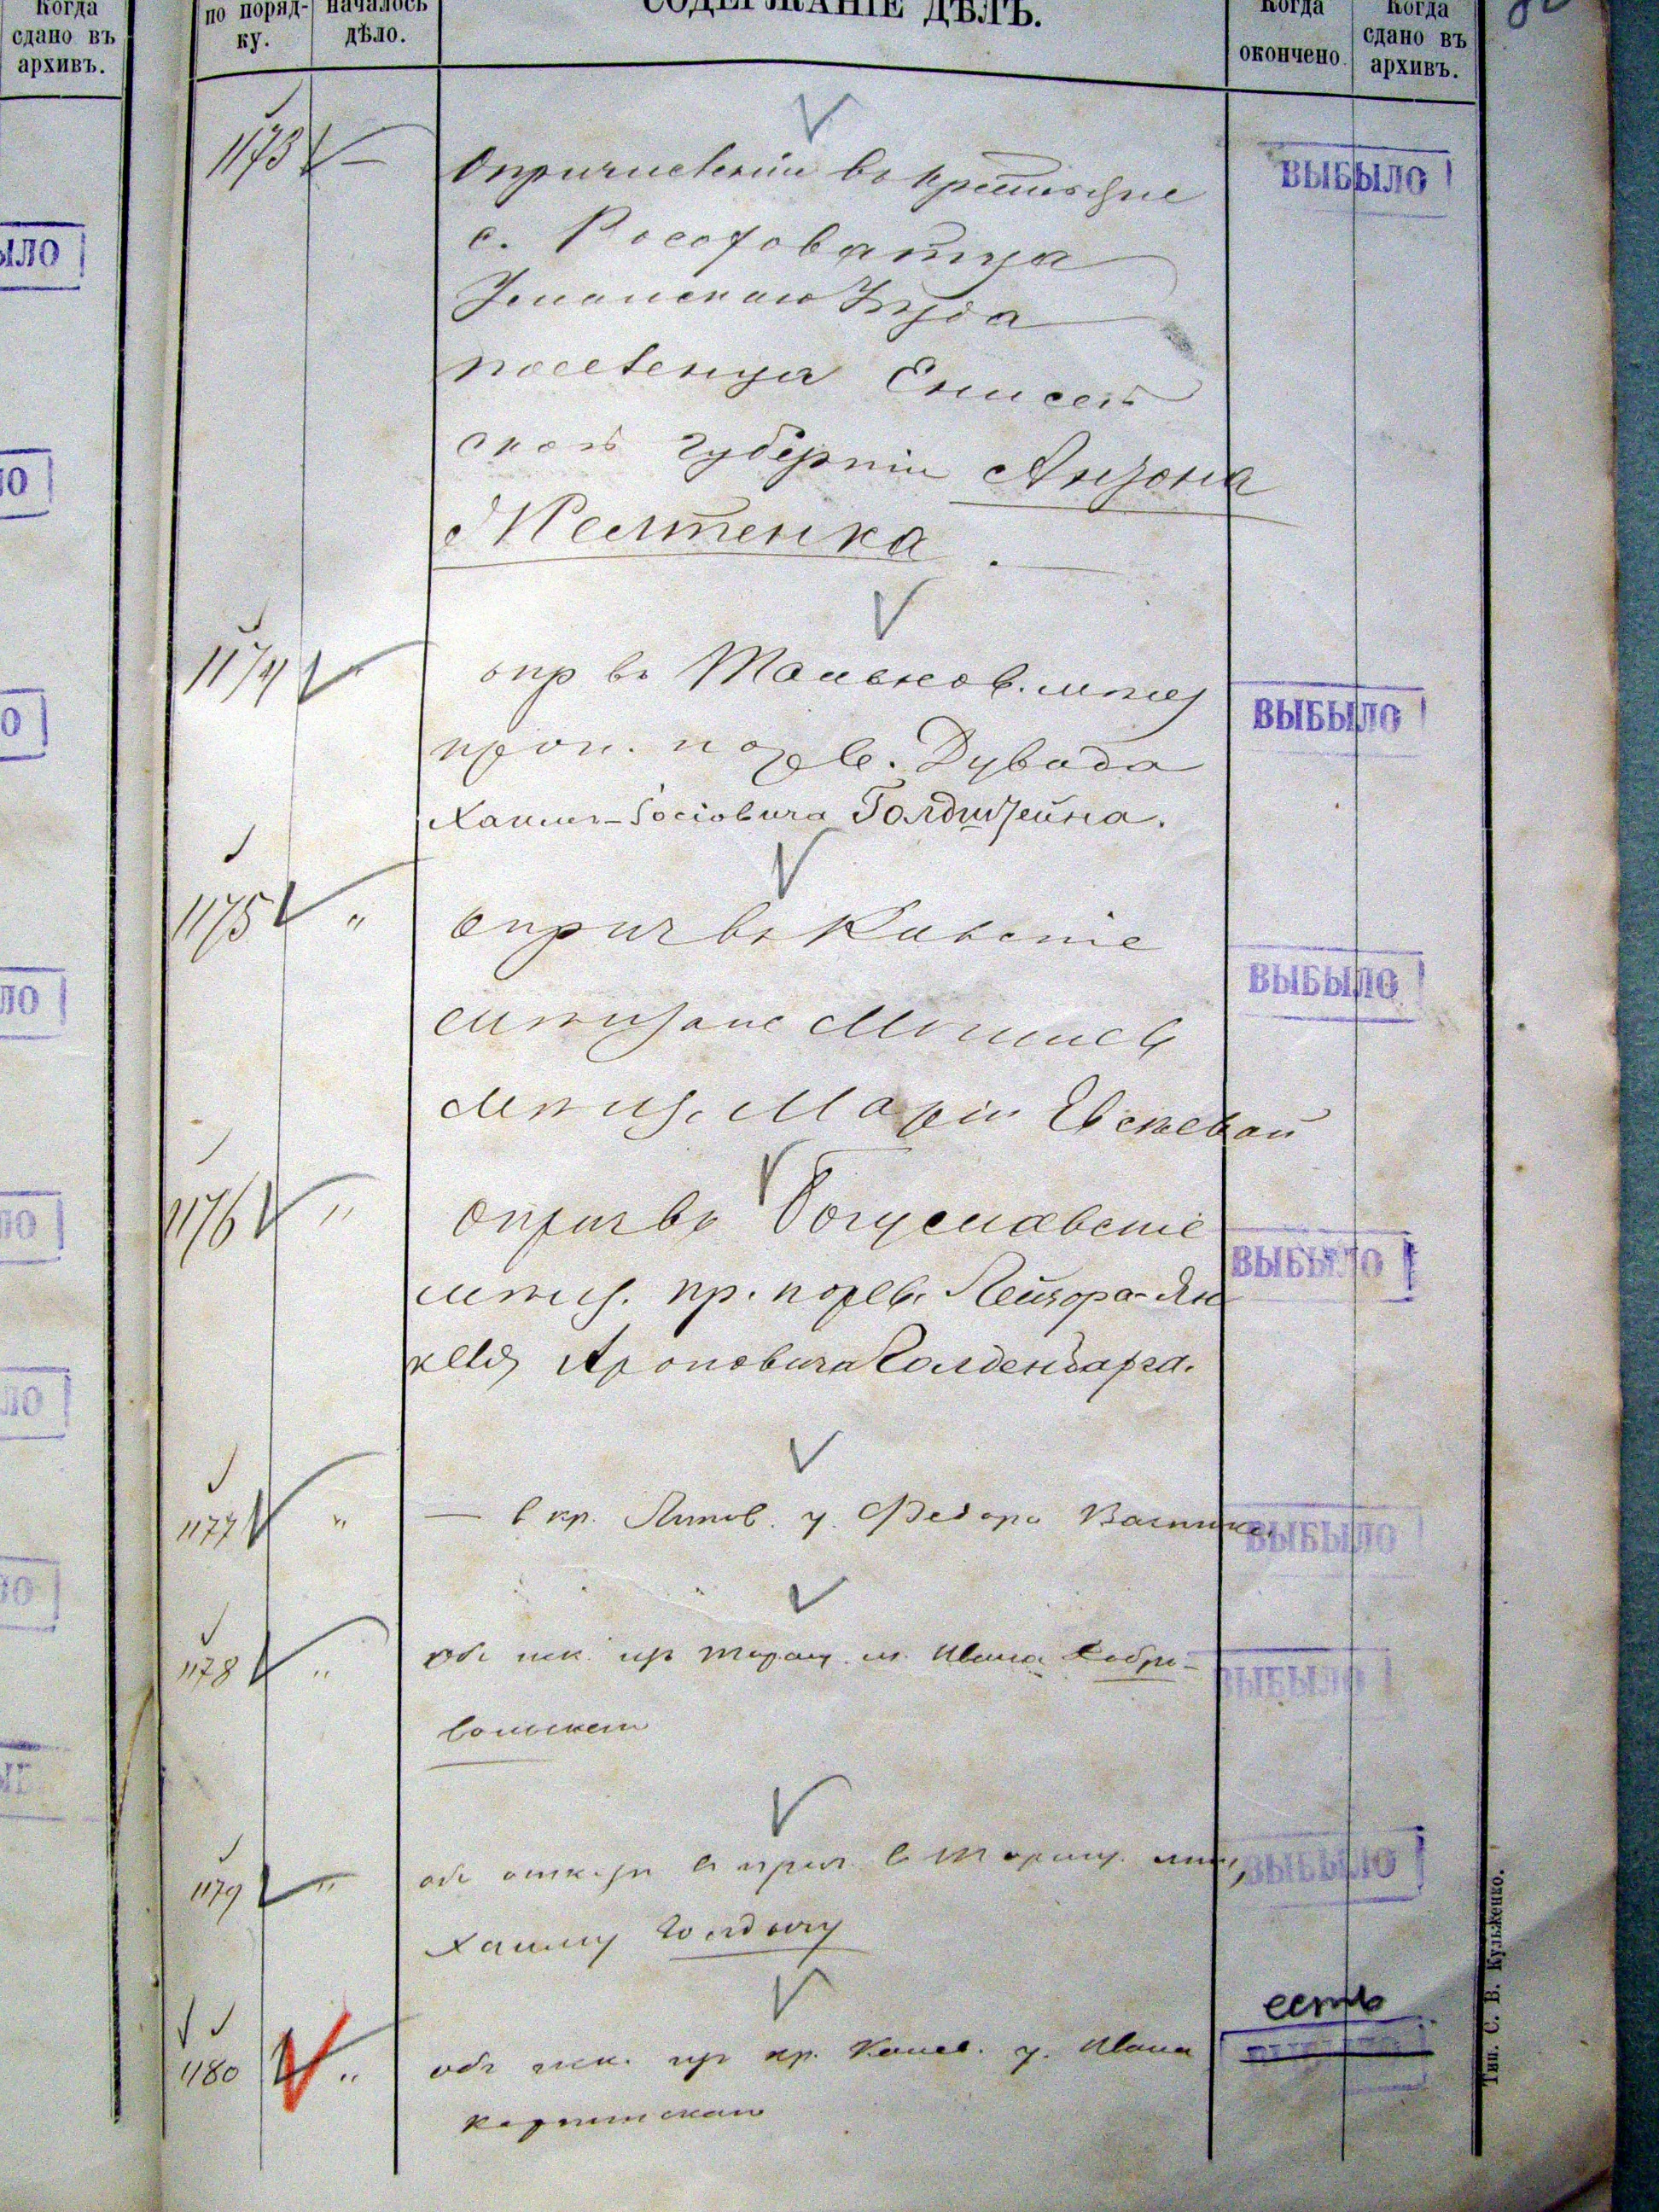 когда
сдано въ
архивъ.
по поряд-
ку.
началось
дѣло.
СОДЕРЖАНІЕ ДѢЛЪ.
когда
окончено.
когда
сдано въ
архивъ.
1173
О причисленіи въ крестьяне
с. Россоховатца
Уманскаго Уѣзда
поселенца Енисей
ской губерніи Антона
Желтенка.
ВЫБЫЛО
1174 "
о пр въ Тальнов. мѣщ
Дувида
Хаимъ-Іосіовича Голдштейна.
ВЫБЫЛО
1175 "
о прич въ Кіевскіе
мѣщане
мѣщ. Маріи
ВЫБЫЛО
1176 "
о прич въ Богуславскіе
мѣщ. пр. Лейзора-Ян
келя Ароновича Голденбарга.
ВЫБЫЛО
1177 "
— в кр. Липов. у. Федора
ВЫБЫЛО
1178 "
объ иск. изъ Таращ. м. Ивана Добро-
вольскаго
ВЫБЫЛО
1179 "
объ отказѣ въ прич. в Таращ.
Хаиму
ВЫБЫЛО
1180 "
объ иск. изъ кр. Канев. у. Ивана
Карпинскаго
есть
ВЫБЫЛО
Тип. С. В. Кульженко.